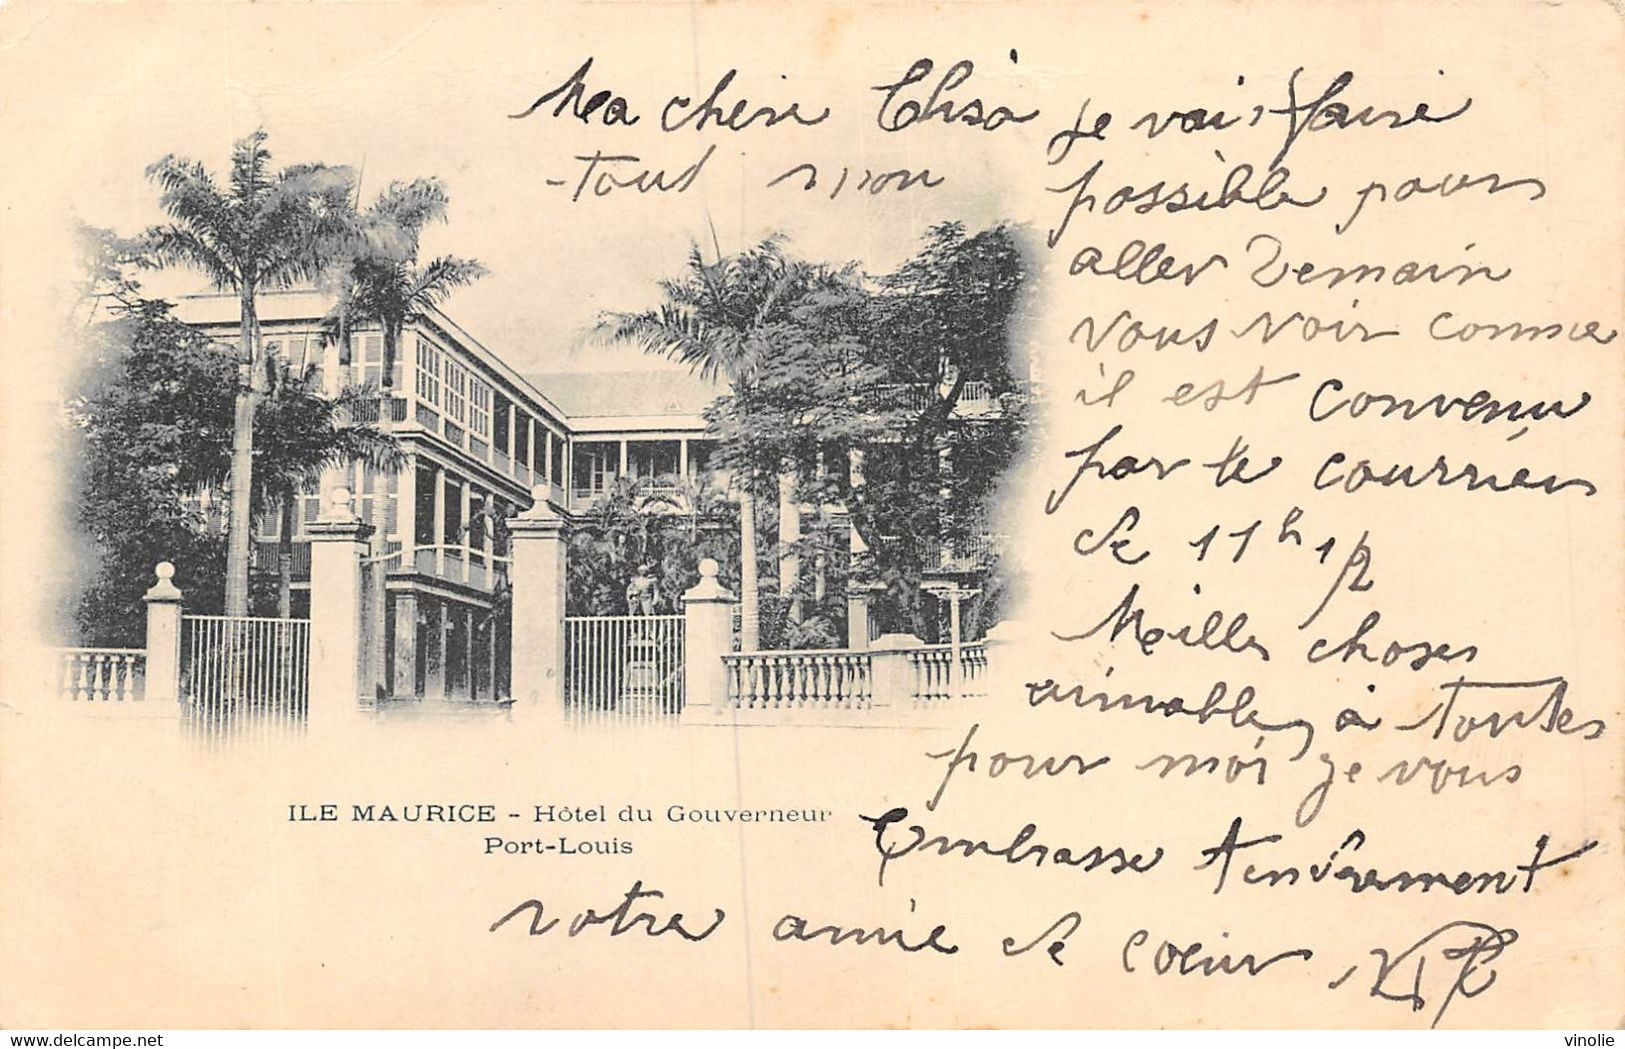 Ma chère Elisa je vais faire
tout mon possible pour
aller demain
vous voir comme
il est convenu
par le courrier
de 11h 1/2
Mille choses
aimables à toutes
pour moi je vous
Embrasse tendrement
votre amie de coeur
ILE MAURICE - Hôtel du Gouverneur
Port-Louis
delcampe.net
vinolie